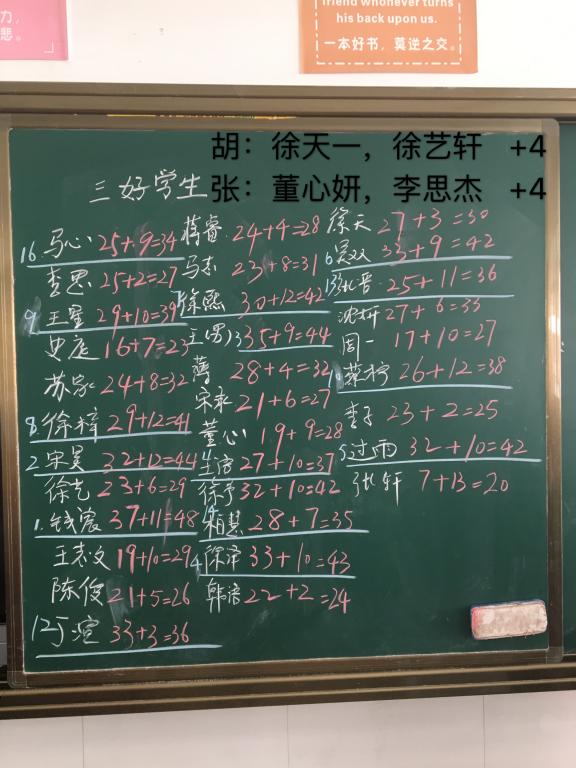 力,
悲。
friend whonever turns
his back upon us.
一本好书，莫逆之交。
胡：徐天一，徐艺轩 +4
张：董心妍，李思杰 +4
三好学生
16.马心 25+9=34
李思 25+2=27
9.王星 29+10=39
史庭 16+7=23
苏家 24+8=32
8.徐梓 29+12=41
2.宋昊 32+12=44
徐艺 23+6=29
1.钱宸 37+11=48
王志文 19+10=29
陈俊 21+5=26
12.丁渲 33+3=36
蒋睿 24+4=28
马 23+8=31
徐熙 30+12=42
王 35+9=44
28+4=32
宋 21+6=27
董心 19+9=28
王 27+10=37
徐 32+10=42
慧 28+7=35
4.徐泽 33+10=43
韩语 22+2=24
徐天 27+3=30
6.吴双 33+9=42
13.张晋 25+11=36
沈 27+6=33
周一 17+10=27
蔡柠 26+12=38
李子 23+2=25
过雨 32+10=42
张轩 7+13=20